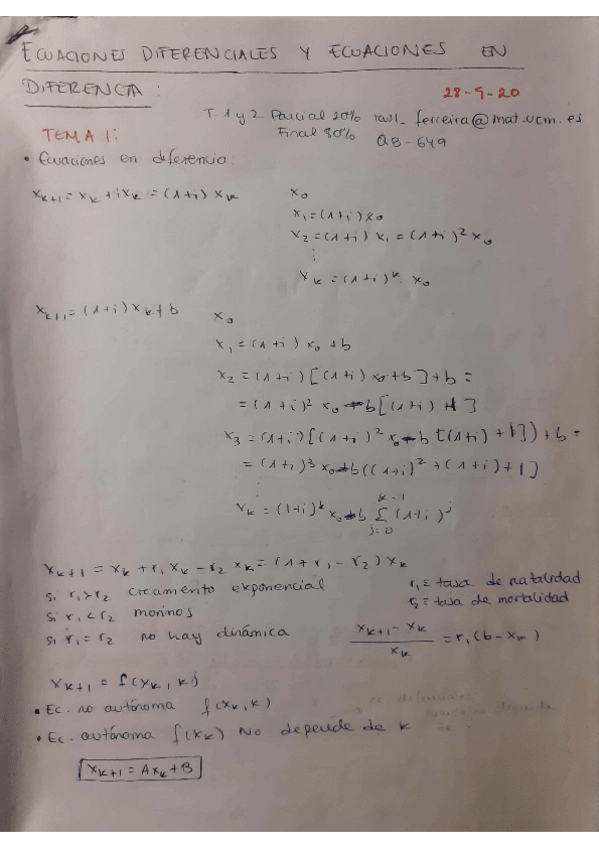 ECUACIONES DIFERENCIALES Y ECUACIONES EN
DIFERENCIA:
28-9-20
T. 1 y 2 Parcial 20% raul_ferreira@mat.ucm.es
Final 80% QB-649
TEMA 1:
• Ecuaciones en diferencia.
x_{k+1} = x_k + i x_k = (1+i) x_k
x_0
x_1 = (1+i) x_0
x_2 = (1+i) x_1 = (1+i)^2 x_0
⋮
x_k = (1+i)^k · x_0
x_{k+1} = (1+i) x_k + b
x_0
x_1 = (1+i) x_0 + b
x_2 = (1+i) [(1+i) x_0 + b] + b =
= (1+i)^2 x_0 + b [(1+i) + 1]
x_3 = (1+i) [(1+i)^2 x_0 + b [(1+i) + 1]) + b =
= (1+i)^3 x_0 + b ((1+i)^2 + (1+i) + 1]
⋮
x_k = (1+i)^k x_0 + b ∑_{j=0}^{k-1} (1+i)^j
x_{k+1} = x_k + r_1 x_k - r_2 x_k = (1 + r_1 - r_2) x_k
si r_1 > r_2 crecimiento exponencial
r_1 ≡ tasa de natalidad
si r_1 < r_2 morimos
r_2 ≡ tasa de mortalidad
si r_1 = r_2 no hay dinámica
(x_{k+1} - x_k) / x_k = r_1 (b - x_k)
x_{k+1} = f(x_k, k)
• Ec. no autónoma f(x_k, k)
• Ec. autónoma f(x_k) No depende de k
x_{k+1} = A x_k + B